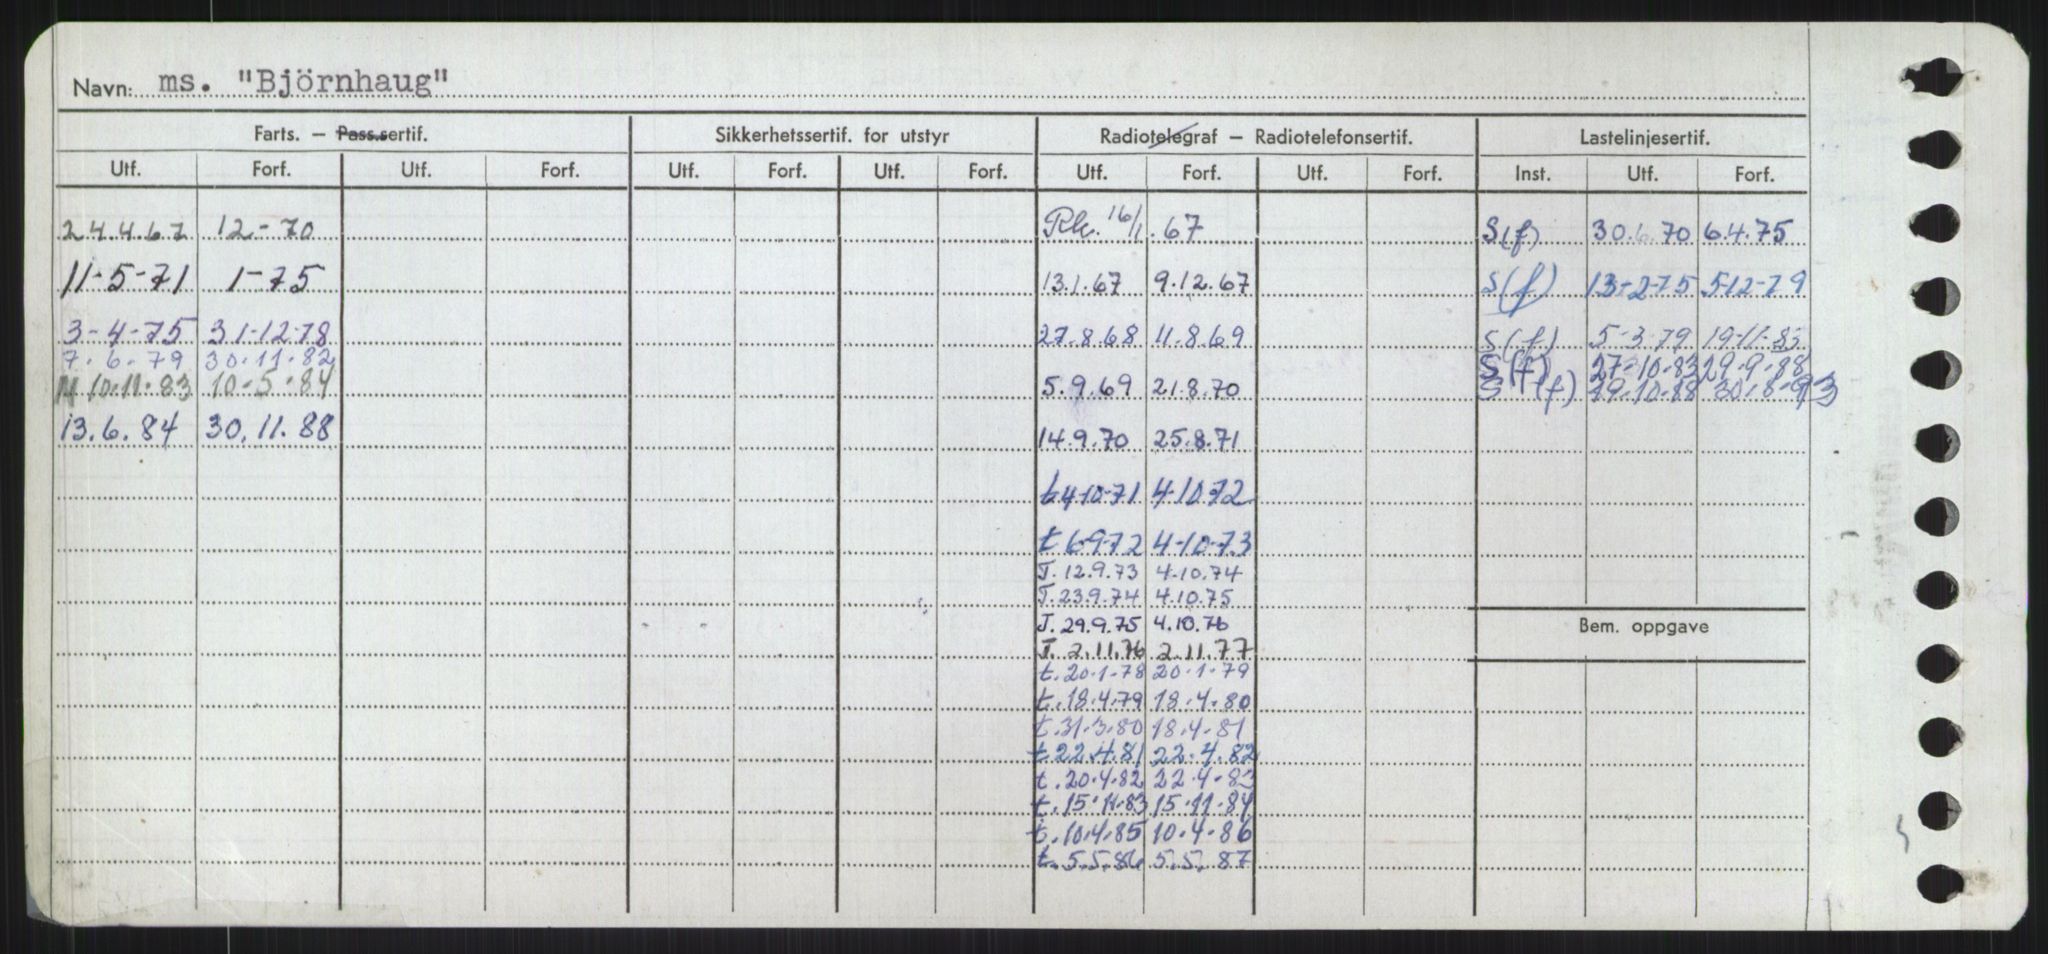 Navn: ms. "Björnhaug"
Farts. — Pass.sertif. Sikkerhetssertif. for utstyr Radiotelegraf — Radiotelefonsertif. Lastelinjesertif.
Utf. Forf. Utf. Forf. Utf. Forf. Utf. Forf. Utf. Forf. Utf. Forf. Inst. Utf. Forf.
24.4.67 12.-70 16/1.67 S(f) 30.6.70 6.4.75
11-5-71 1-75 13.1.67 9.12.67 S(f) 13-2-75 5-12-79
3-4-75 31-12-78 27.8.68 11.8.69 S(f) 5-3-79 19-11-83
7.6.79 30.11.82 S(f) 27-10-83 29-9-88
10.11.83 10-5-84 5.9.69 21.8.70 S(f) 29-10-88 30-8-93
13.6.84 30.11.88 14.9.70 25.8.71
t 4-10-71 4-10-72
t 6-9-72 4-10-73
T. 12.9.73 4.10.74
T. 23.9.74 4.10.75
T. 29.9.75 4.10.76
T. 2.11.76 2.11.77
t. 20-1-78 20-1-79
t. 18.4.79 18.4.80
t. 31.3.80 18.4.81
t 22.4.81 22.4.82
t. 20.4.82 22.4.83
t. 15.11.83 15.11.84
t. 10.4.85 10.4.86
t. 5.5.86 5.5.87
Bem. oppgave